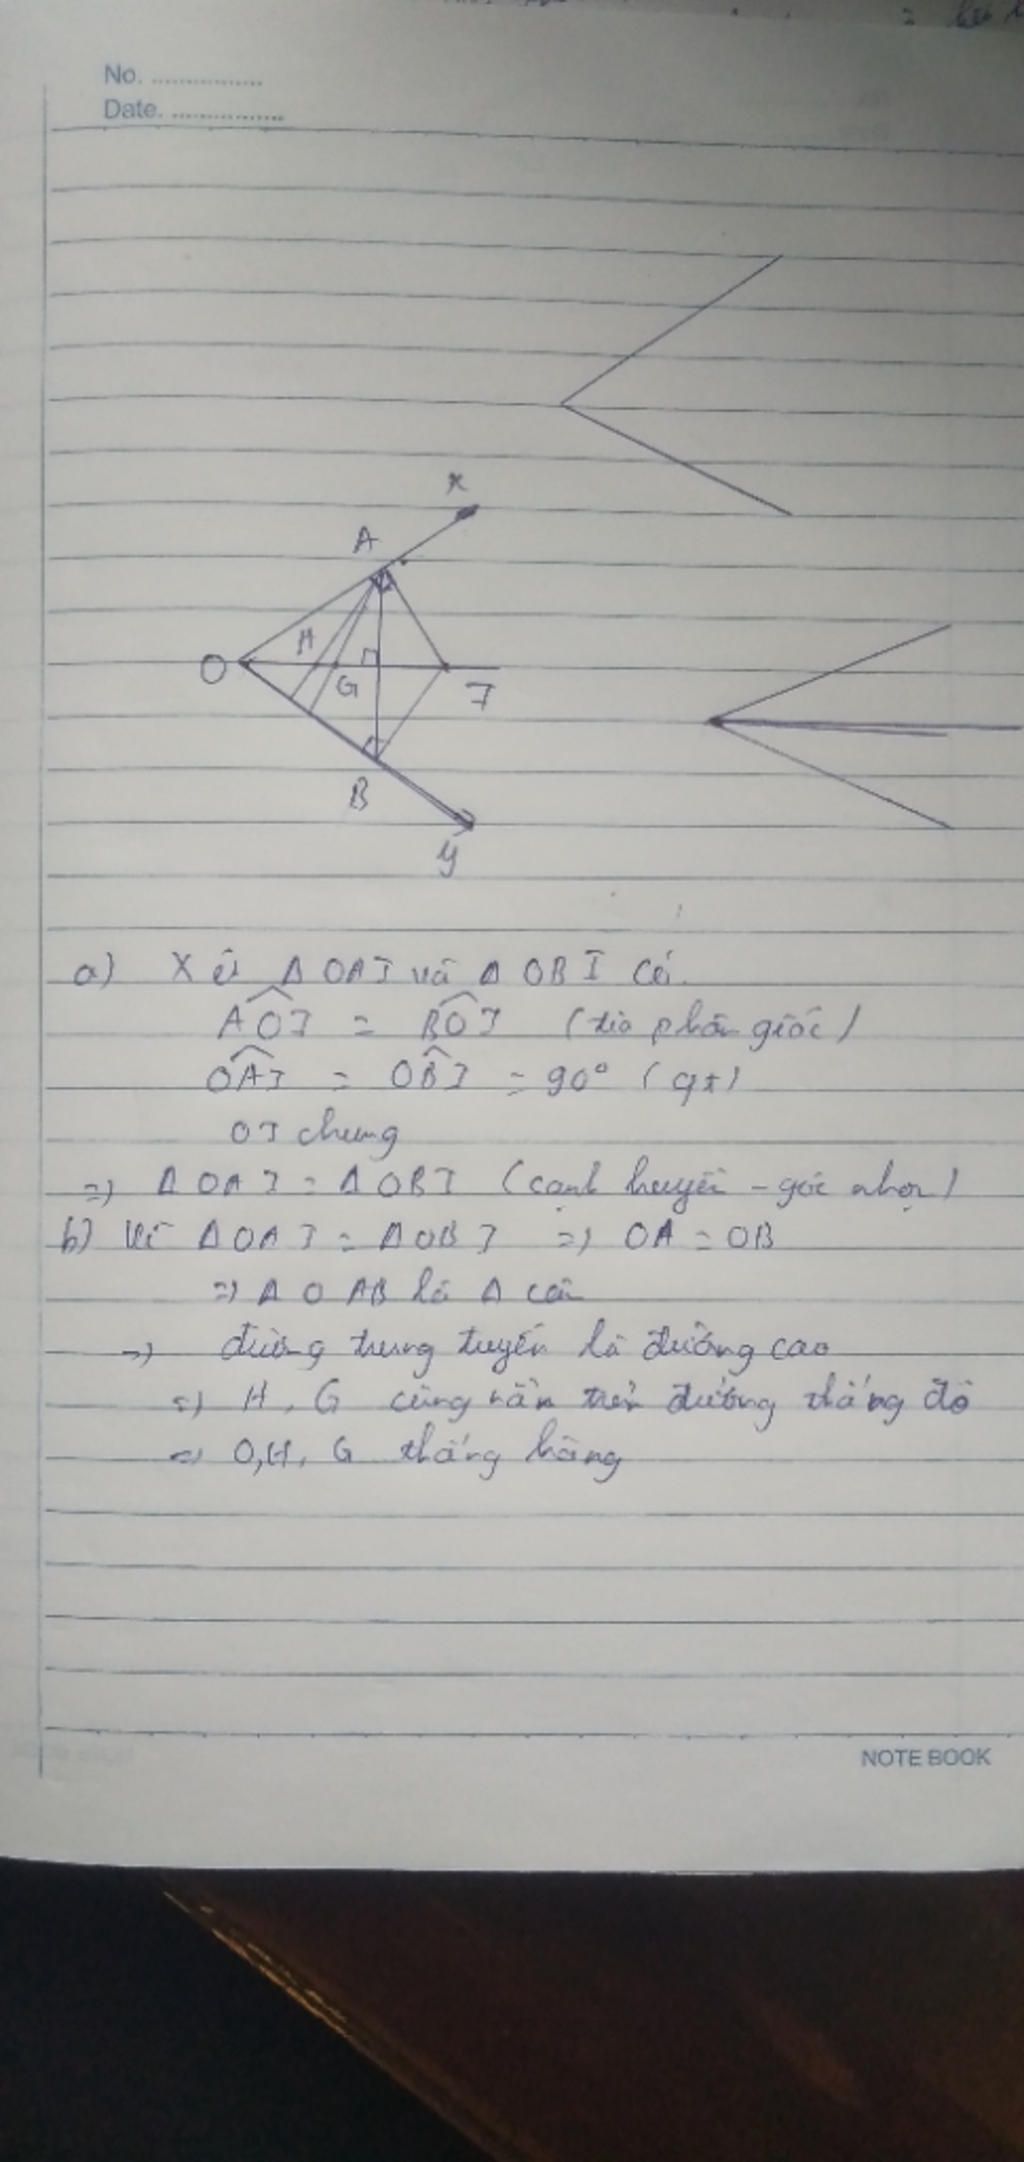 No. ................
Date. ................
x
A
H
O
G
I
B
y
a) Xét Δ OAI và Δ OBI có
AOI = BOI (tia phân giác)
OAI = OBI = 90° (gt)
OI chung
=> Δ OAI = Δ OBI (cạnh huyền - góc nhọn)
b) Vì Δ OAI = Δ OBI => OA = OB
=> Δ OAB là Δ cân
=> đường trung tuyến là đường cao
=> H, G cùng nằm trên đường thẳng đó
=> O, H, G thẳng hàng
NOTE BOOK